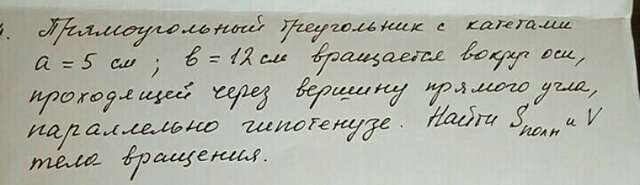 4. Прямоугольный треугольник с катетами
a = 5 см ; b = 12 см вращается вокруг оси,
проходящей через вершину прямого угла,
параллельно гипотенузе. Найти Sполн и V
тела вращения.